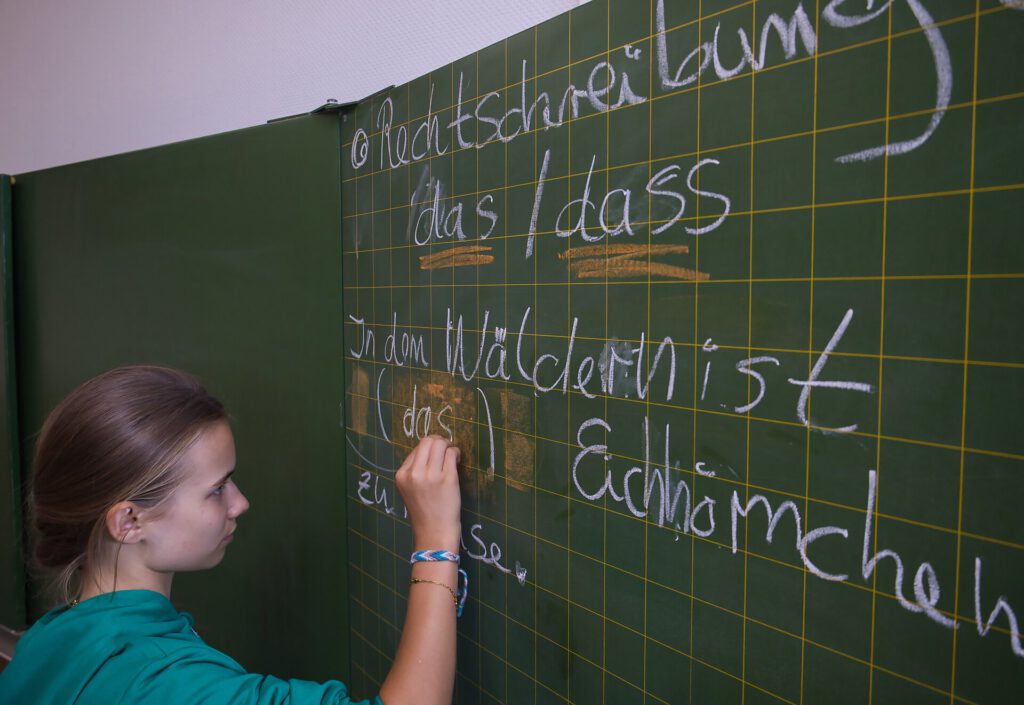 Rechtschreibung
das / dass
In den Wäldern ist
(das) Eichhörnchen
zu